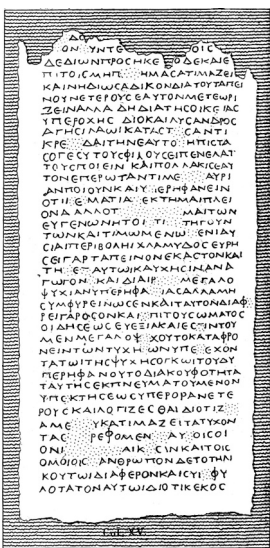 ΔΕΔΙΩΝΠΡΟΣΗΚΕ ΟΔΕΚΑΙΕ
ΠΙΤΟΙΣΜΗΠ ΗΜΑΣΑΤΙΜΑΖΕΙ
ΚΑΙΝΗΔΙΩΣΑΔΙΚΟΝΔΙΑΤΟΥΤΑΠΕΙ
ΝΟΥΝΕΤΕΡΟΥΣΕΑΥΤΟΝΜΕΤΕΩΡΙ
ΖΕΙΝΑΛΛΑΔΗΔΙΑΤΗΣΟΙΚΕΙΑΣ
ΥΠΕΡΟΧΗΣ ΔΙΟΚΑΙΛΥΣΑΝΔΡΟΣ
ΑΓΗΣΙΛΑΩΙΚΑΤΑΣΤ ΣΑΝΤΙ
ΚΡΕ ΔΑΙΤΗΝΕΑΥΤΟ ΗΠΙΣΤΑ
ΤΟΥΣΠΟΙΕΙΝ ΚΑΙΠΟΛΛΑΚΙΣΕΑΥ
ΤΟΝΕΠΕΡΩΤΑΝΤΙΜΕ ΑΥΡΙ
ΑΝΠΟΙΟΥΝΚΑΙΥ ΕΡΗΦΑΝΕΙΝ
ΟΤΙΙ ΕΜΑΤΙΑ ΕΚΤΗΜΑΙΠΛΕΙ
ΟΝΑ ΑΛΛΟΤ ΜΑΙΤΩΝ
ΕΥΓΕΝΩΝΗΤΟΙ ΤΙ ΤΗΓΟΥΝ
ΤΩΝΚΑΙΤΙΜΩΜΕΝΩ ΕΝΙΑΥ
ΣΙΑΙΠΕΡΙΒΟΛΗΙΧΛΑΜΥΔΟΣΕΥΡΗ
ΣΕΙΓΑΡΤΑΠΕΙΝΟΝΕΚΑΣΤΟΝΚΑΙ
ΤΗ Ε ΑΥΤΩΙΚΑΥΧΗΣΙΝΑΝΑ
ΓΩΓΟΝ ΚΑΙΔΙΑΙ ΜΕΓΑΛΟ
ΨΥΧΙΑΝΥΠΕΡΗΦΑ ΙΑΣΑΛΛΑΜΗ
ΣΥΜΦΥΡΕΙΝΩΣΕΝΚΑΙΤΑΥΤΟΝΔΙΑΦ
ΡΕΙΓΑΡΟΣΟΝΚΑΙ ΠΙΤΟΥΣΩΜΑΤΟΣ
ΟΙΔΗΣΕΩΣΕΥΕΞΙΑΚΑΙΕΣΤΙΝΤΟΥ
ΜΕΝΜΕΓΑΛΟΨ ΧΟΥΤΟΚΑΤΑΦΡΟ
ΝΕΙΝΤΩΝΤΥΧΗ ΩΝΥΠΕ ΕΧΟΝ
ΤΑΤΩΙΤΗΣΨΥΧΗΣΟΓΚΩΙΤΟΥΔΥ
ΠΕΡΗΦΑΝΟΥΤΟΔΙΑΚΟΥΦΟΤΗΤΑ
ΤΑΥΤΗΣΕΚΠΝΕΥΜΑΤΟΥΜΕΝΟΝ
ΥΠΕΚΤΗΣΕΩΣΥΠΕΡΟΡΑΝΕΤΕ
ΡΟΥΣΚΑΙΛΟΓΙΖΕΣΘΑΙΔΙΟΤΙΣ
ΑΜΕ ΥΚΑΤΙΜΑΖΕΙΤΑΤΥΧΟΝ
ΤΑΣ ΡΕΦΟΜΕΝ ΑΥ ΟΙΣΟΙ
ΟΝΙ ΑΙΚ ΣΙΝΚΑΙΤΟΙΣ
ΟΜΟΙΟΙΣ ΑΝΘΡΩΠΟΝΔΕΤΟΤΗΝ
ΚΟΥΤΩΙΔΙΑΦΕΡΟΝΚΑΙΣΥΙ ΦΥ
ΛΟΤΑΤΟΝΑΥΤΩΙΔΙΟΤΙΚΕΚΟΣ
Col. XV.